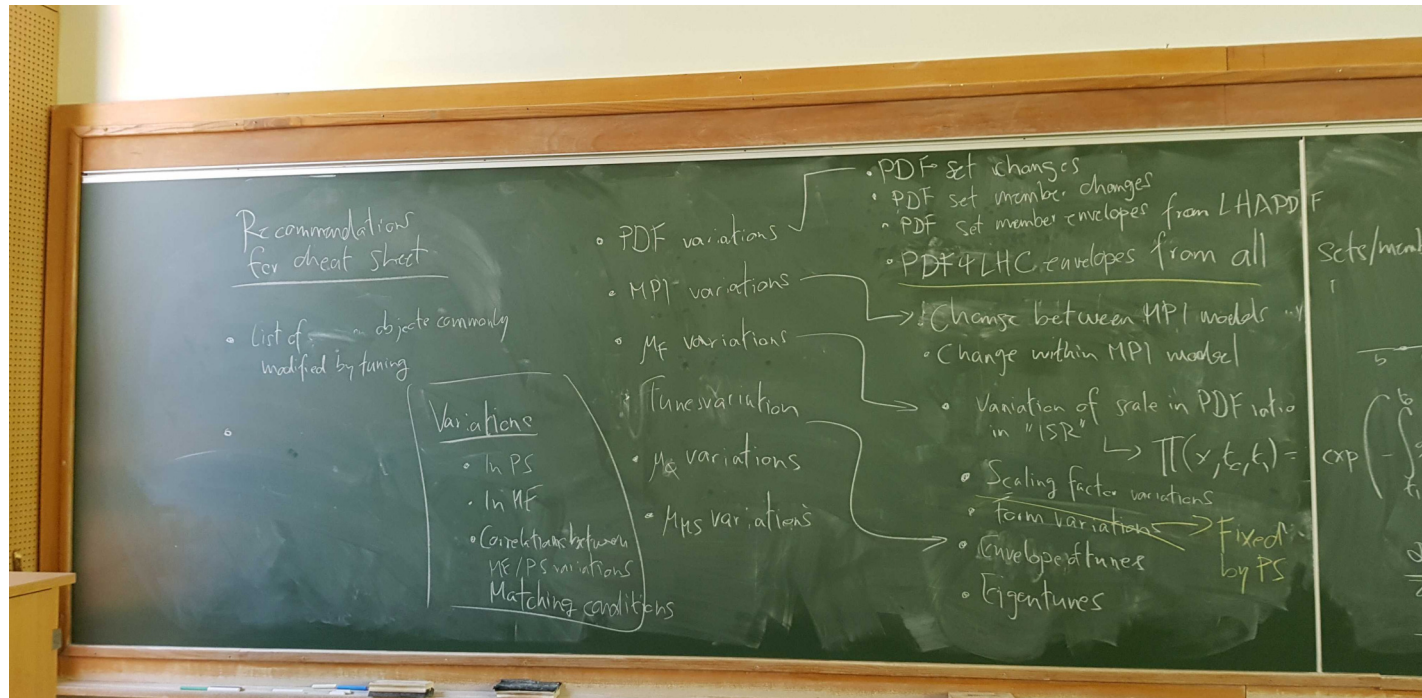 Recommendations
for cheat sheet
• List of objects commonly
modified by tuning
Variations
• In PS
• In ME
• Correlations between
ME/PS variations
Matching conditions
• PDF variations
• MPI variations
• μF variations
• Tunes variation
• μQ variations
• μMS variations
• PDF set changes
• PDF set member changes
• PDF set member envelopes from LHAPDF
• PDF4LHC envelopes from all
sets/memb
• Change between MPI models
• Change within MPI model
• Variation of scale in PDF ratio
in "ISR"
∏(x, tc, t1) = exp(-∫
• Scaling factor variations
• Form variations
Fixed
by PS
• Envelope of tunes
• Eigentunes